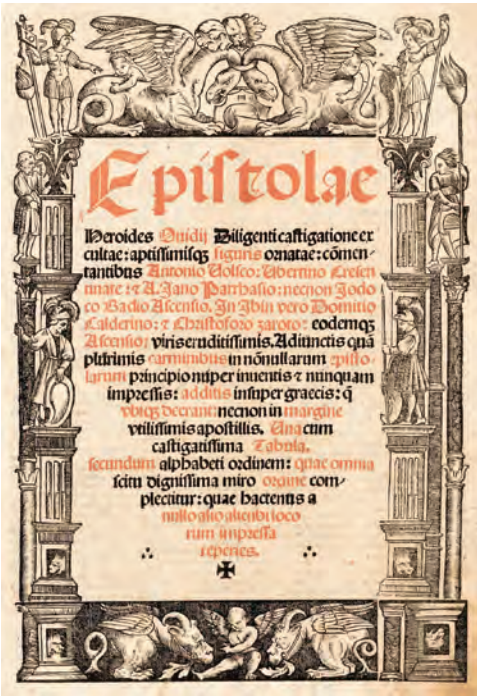 Epiſtolae
Heroides Ouidij Diligenti caſtigatione ex
cultae: aptiſſimiſqꝫ figuris ornatae: cõmen-
tantibus Antonio Uolſco: Ubertino Creſcen
tinate: ⁊ A. Jano Parrhaſio: necnon Jodo
co Badio Aſcenſio. In Ibin vero Domitio
Calderino: ⁊ Chriſtoforo zaroto: eodemqꝫ
Aſcenſio: viris eruditiſſimis. Adiunctis quã
plurimis carminibus in nõnullarum epiſto-
larum principio nuper inuentis ⁊ nunquam
impreſſis: additis inſuper graecis: q̃
vbiqꝫ deerant: necnon in margine
vtiliſſimis apoſtillis. Una cum
caſtigatiſſima Tabula,
ſecundum alphabeti ordinem: quae omnia
ſcitu digniſſima miro ordine com-
plectitur: quae hactenus a
nullo alio alicubi loco
rum impreſſa
reperies.